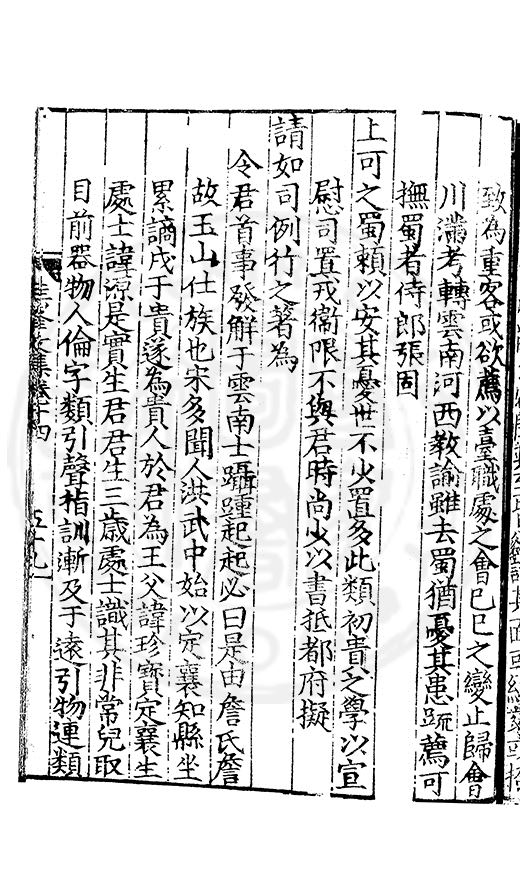 致為重客或欲薦以臺職處之會巳巳之變止歸會
川滿考轉雲南河西教諭雖去蜀猶憂其患疏薦可
撫蜀者侍郎張固
上可之蜀賴以安其憂世不少置多此類初貴之學以宣
慰司置戎衞限不與君時尚少以書抵都府擬
請如司例行之著為
令君首事發解于雲南士躡踵起起必曰是由詹氏詹
故玉山仕族也宋多聞人洪武中始以定襄知縣坐
累謫戍于貴遂為貴人於君為王父諱珍寳定襄生
處士諱源是實生君君生三歳處士識其非常兒取
目前器物人倫字類引聲指訓漸及于遠引物連類
文集卷十四